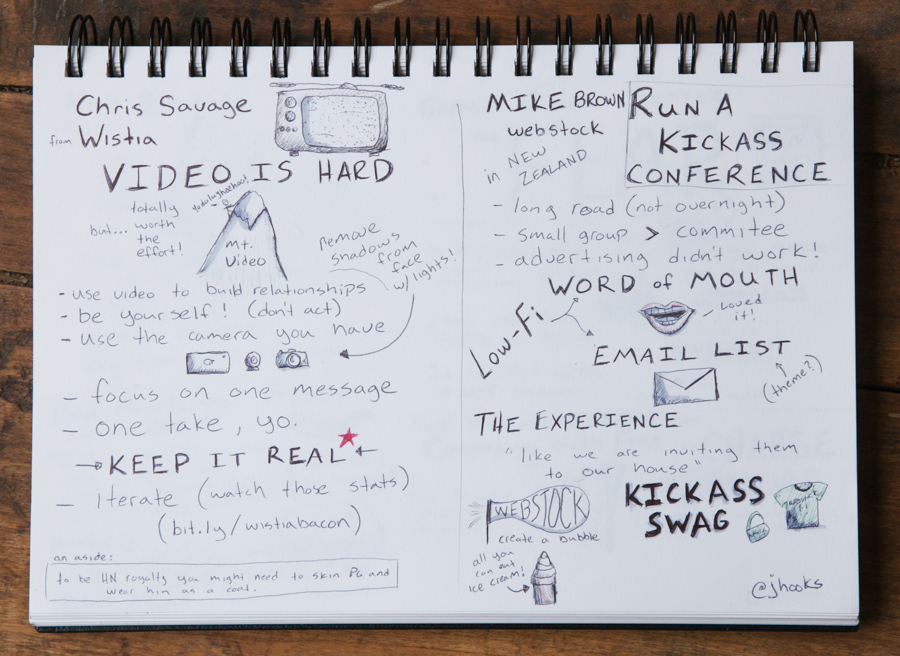 Chris Savage
from Wistia
VIDEO IS HARD
totally
but... worth
the
effort!
Mt.
Video
remove
shadows
from
face
w/ lights!
- use video to build relationships
- be yourself! (don't act)
- use the camera you have
- focus on one message
- one take, yo.
KEEP IT REAL
- Iterate (watch those stats)
(bit.ly/wistiabacon)
an aside:
to be HN royalty you might need to skin PG and
wear him as a coat.
MIKE BROWN
webstock
in NEW
ZEALAND
RUN A
KICKASS
CONFERENCE
- long road (not overnight)
- small group > commitee
- advertising didn't work!
WORD of MOUTH
Loved
it!
Low-Fi
EMAIL LIST
(theme?)
THE EXPERIENCE
"like we are inviting them
to our house"
WEBSTOCK
create a bubble
KICKASS
SWAG
all you
can eat
ICE CREAM!
@jhooks